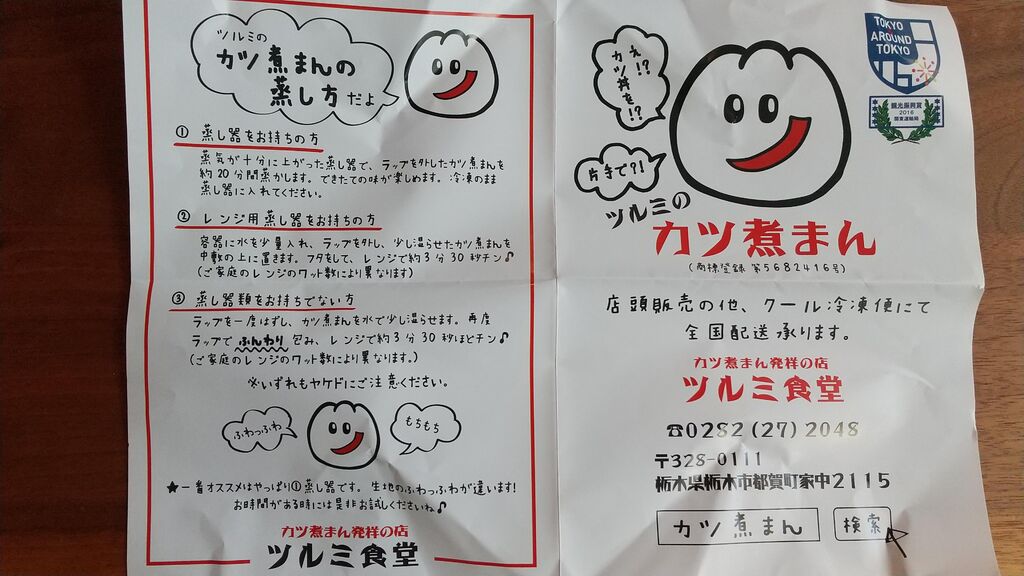 ツルミの
カツ煮まんの
蒸し方だよ
① 蒸し器をお持ちの方
蒸気が十分に上がった蒸し器で、ラップを外したカツ煮まんを
約20分間蒸かします。できたての味が楽しめます。冷凍のまま
蒸し器に入れてください。
② レンジ用蒸し器をお持ちの方
容器に水を少量入れ、ラップを外し、少し湿らせたカツ煮まんを
中敷の上に置きます。フタをして、レンジで約3分30秒チン♪
(ご家庭のレンジのワット数により異なります)
③ 蒸し器類をお持ちでない方
ラップを一度はずし、カツ煮まんを水で少し湿らせます。再度
ラップでふんわり包み、レンジで約3分30秒ほどチン♪
(ご家庭のレンジのワット数により異なります。)
※いずれもヤケドにご注意ください。
ふわっふわ
もちもち
★一番オススメはやっぱり①蒸し器です。生地のふわっふわが違います!
お時間がある時には是非お試しくださいね♪
カツ煮まん発祥の店
ツルミ食堂
え!?
カツ丼を!?
片手で?!
TOKYO
AROUND
TOKYO
観光振興賞
2016
関東運輸局
ツルミの
カツ煮まん
(商標登録 第5682416号)
店頭販売の他、クール冷凍便にて
全国配送承ります。
カツ煮まん発祥の店
ツルミ食堂
☎0282(27)2048
〒328-0111
栃木県栃木市都賀町家中2115
カツ煮まん 検索